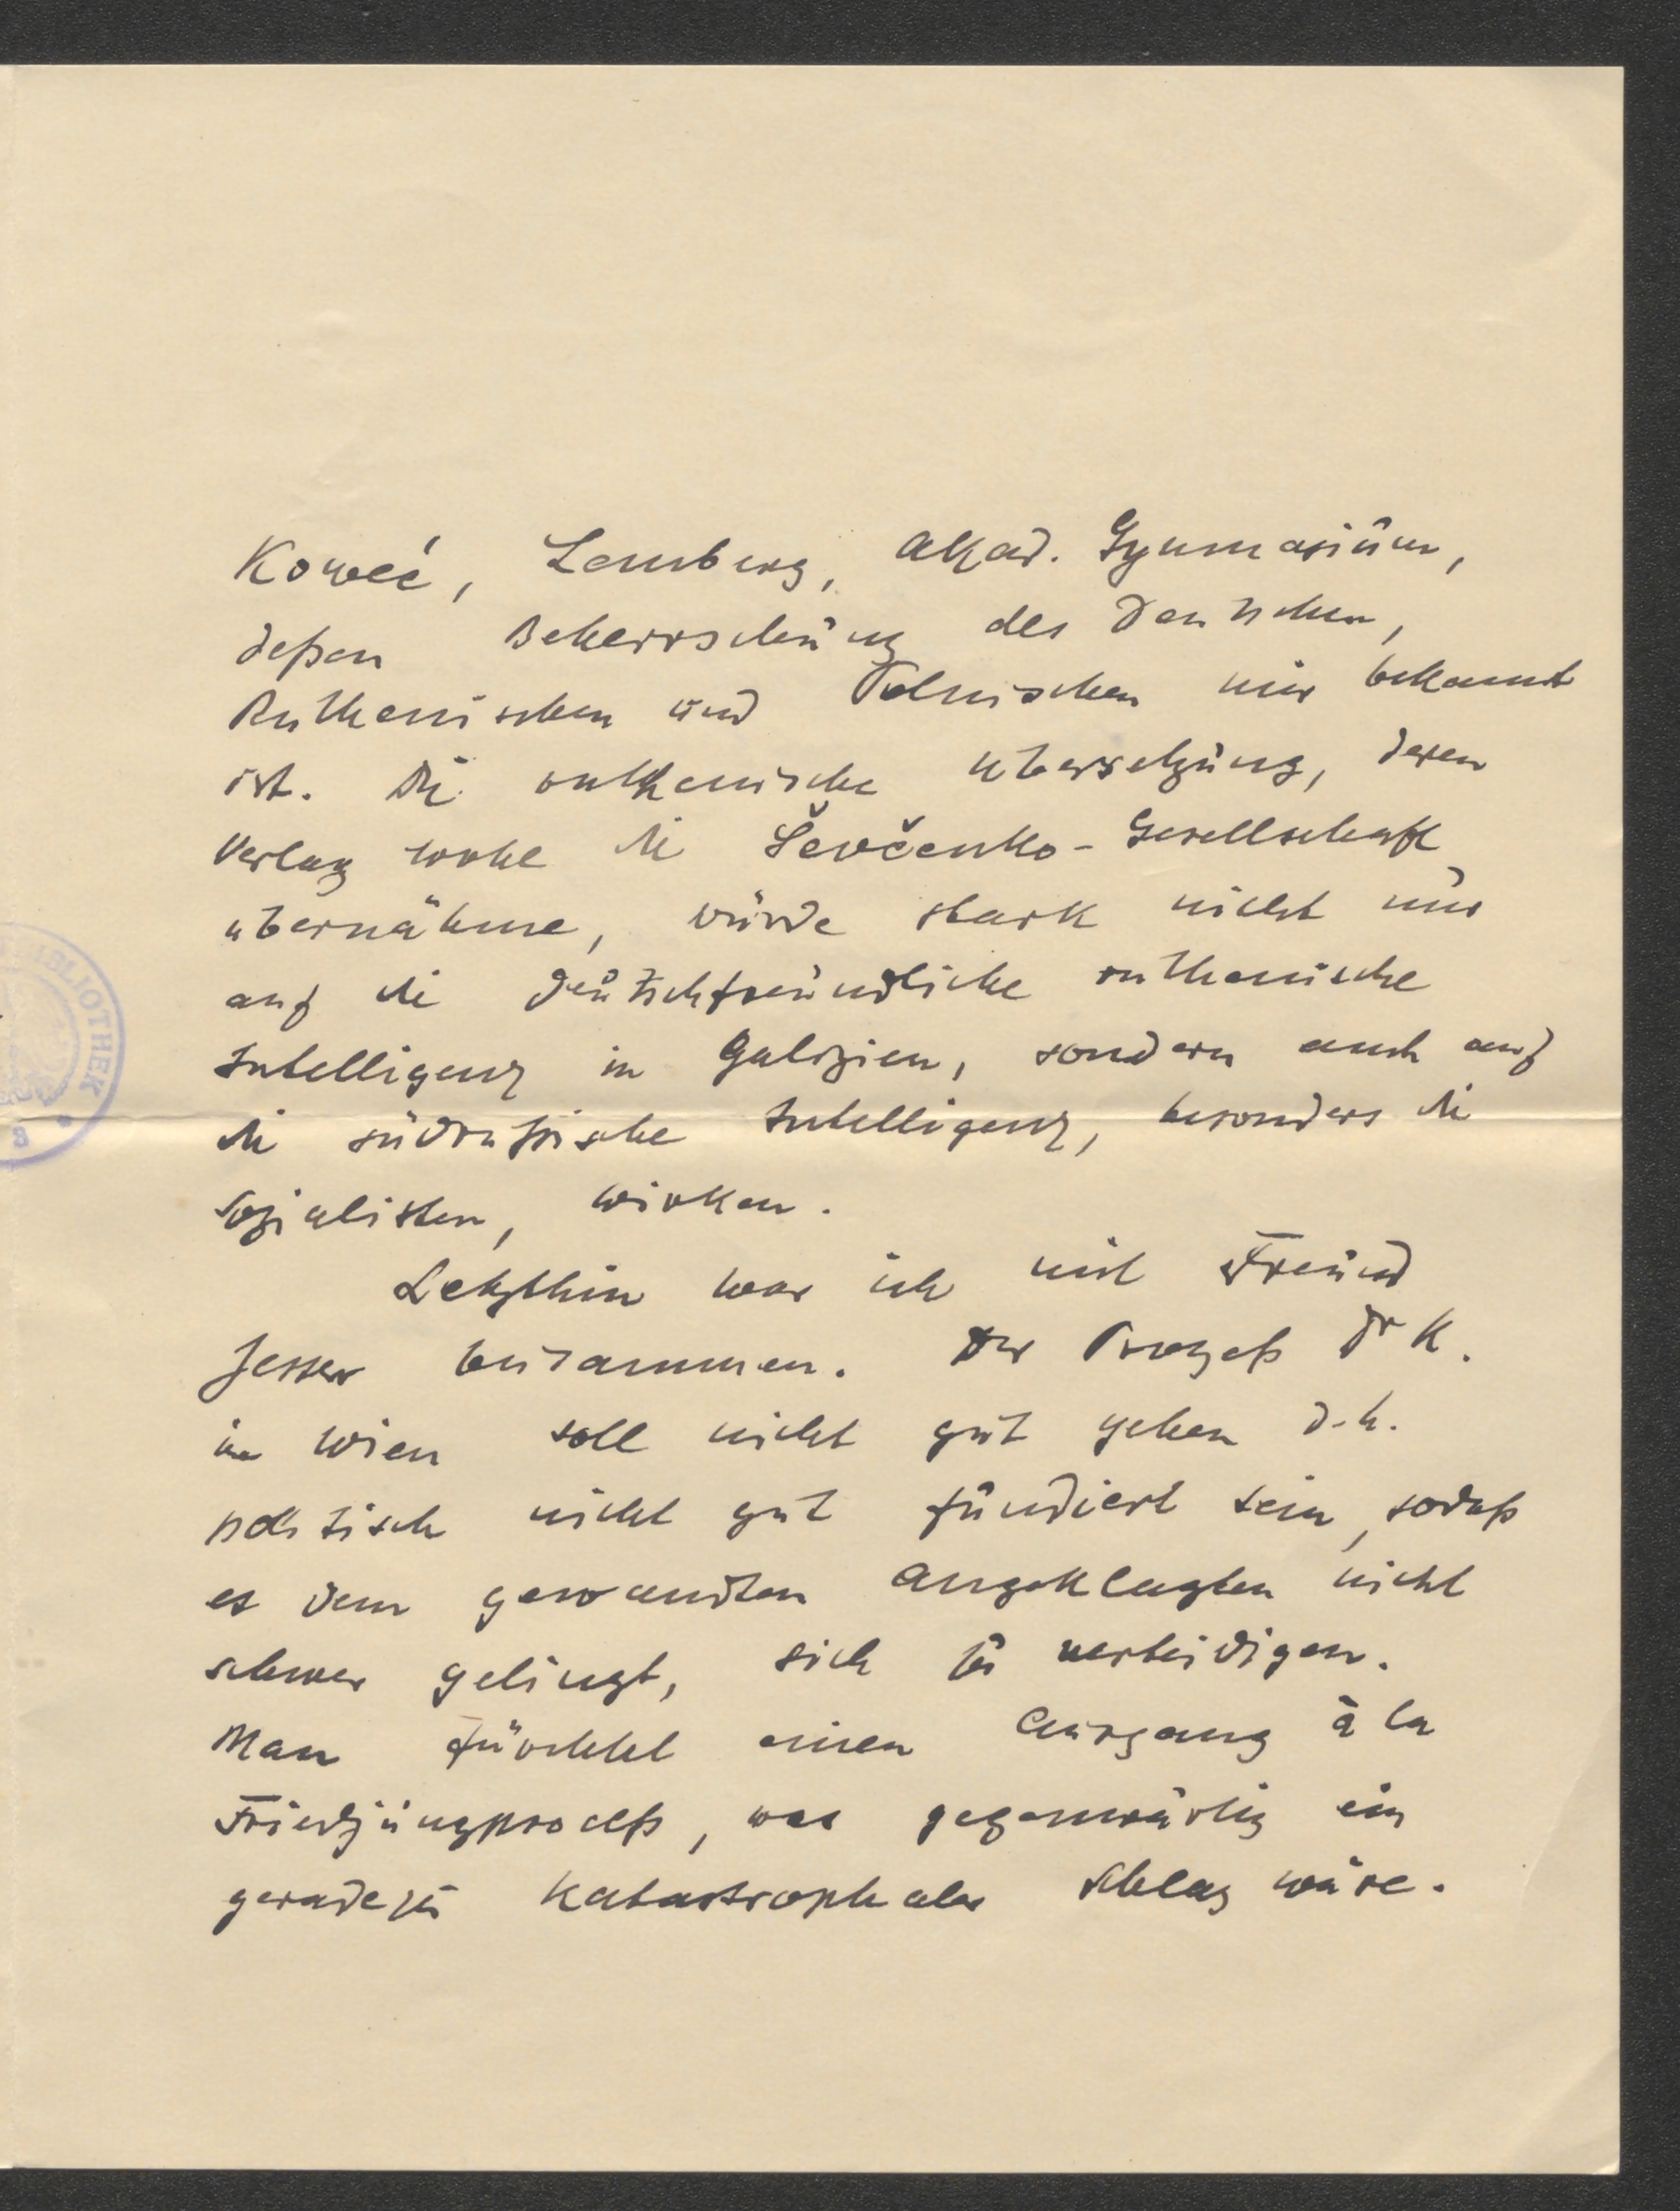 Koweć, Lemberg, Akad. Gymnasium,
deßen Beherrschung des Deutschen,
Ruthenischen und Polnischen mir bekannt
ist. Die ruthenische Übersetzung, deren
Verlag wohl die Ševčenko-Gesellschaft
übernähme, würde stark nicht nur
auf die deutschfreundliche ruthenische
Intelligenz in Galizien, sondern auch auf
die südrußische Intelligenz, besonders die
Sozialisten, wirken.
Letzthin war ich mit Freund
Jesser beisammen. Der Prozeß Dr K.
in Wien soll nicht gut gehen d.h.
politisch nicht gut fundiert sein, sodaß
es dem gewandten Angeklagten nicht
schwer gelingt, sich zu verteidigen.
Man fürchtet einen Ausgang à la
Friedjungproceß, was gegenwärtig ein
geradezu katastrophaler Schlag wäre.
BIBLIOTHEK